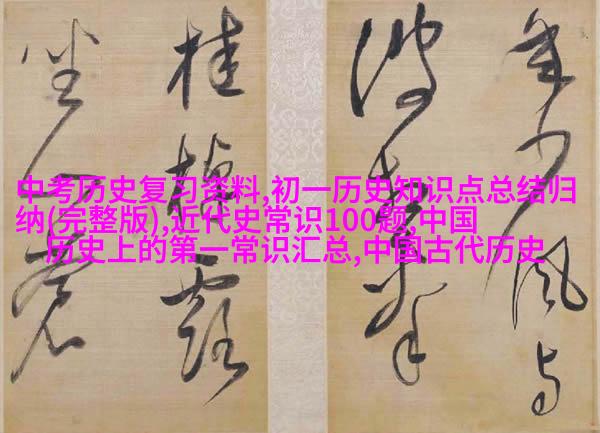 中考历史复习资料,初一历史知识点总结归
纳(完整版),近代史常识100题,中国
历史上的第一常识汇总,中国古代历史
少風
桂棹露